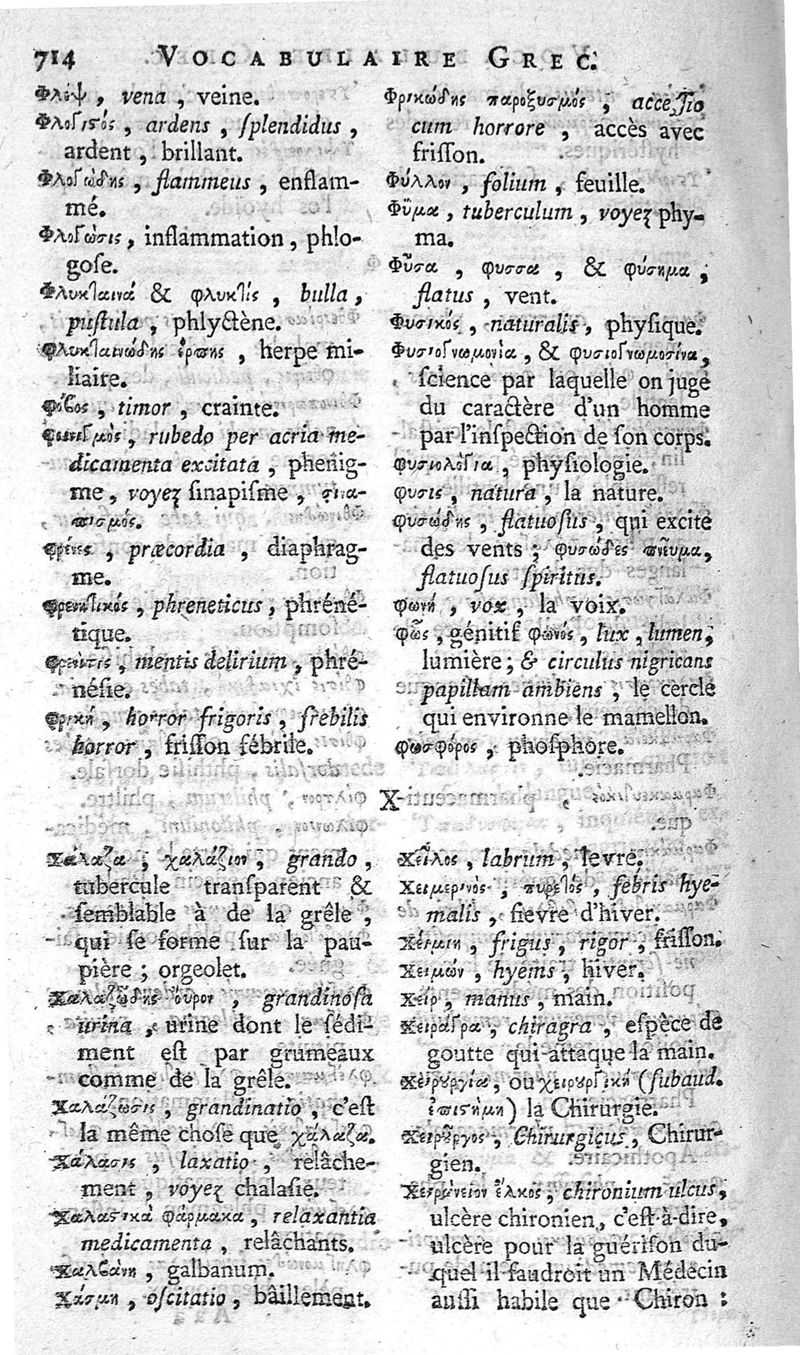 714 VOCABULAIRE GREC.
Φλέψ, vena, veine.
Φλογιστός, ardens, splendidus,
ardent, brillant.
Φλογώδης, flammeus, enflam-
mé.
Φλόγωσις, inflammation, phlo-
gose.
Φλυκταινά & φλυκτίς, bulla,
pustula, phlyctène.
Φλυκταινώδης ἕρπης, herpe mi-
liaire.
φόβος, timor, crainte.
φοινιγμὸς, rubedo per acria me-
dicamenta excitata, phenig-
me, voyez sinapisme, σινα-
πισμός.
φρένες, præcordia, diaphrag-
me.
φρενητικός, phreneticus, phréné-
tique.
φρενῖτις, mentis delirium, phré-
nésie.
φρική, horror frigoris, frebilis
horror, frisson fébrile.
Φρικώδης παροξυσμός, accessio
cum horrore, accès avec
frisson.
Φύλλον, folium, feuille.
Φῦμα, tuberculum, voyez phy-
ma.
Φῦσα, φυσσα, & φύσημα,
flatus, vent.
Φυσικός, naturalis, physique.
Φυσιογνωμονία, & φυσιογνωμοσίνα,
science par laquelle on juge
du caractère d'un homme
par l'inspection de son corps.
φυσιολογία, physiologie.
φυσις, natura, la nature.
φυσώδης, flatuosus, qui excite
des vents; φυσώδες πνεῦμα,
flatuosus spiritus.
φωνή, vox, la voix.
φῶς, génitif φωνός, lux, lumen,
lumière; & circulus nigricans
papillam ambiens, le cercle
qui environne le mamellon.
φωσφόρος, phosphore.
X
χάλαζα, χαλάζιον, grando,
tubercule transparent &
semblable à de la grêle,
qui se forme sur la pau-
pière; orgeolet.
χαλαζώδης οὖρον, grandinosa
urina, urine dont le sédi-
ment est par grumeaux
comme de la grêle.
χαλάζωσις, grandinatio, c'est
la même chose que χάλαζα.
χάλασις, laxatio, relâche-
ment, voyez chalasie.
χαλαστικὰ φάρμακα, relaxantia
medicamenta, relâchants.
χαλβάνη, galbanum.
χάσμη, oscitatio, bâillement.
χεῖλος, labrum, levre.
χειμερινός, πυρετός, febris hye-
malis, fievre d'hiver.
χείμιη, frigus, rigor, frisson.
χειμών, hyems, hiver.
χειρ, manus, main.
χειράγρα, chiragra, espèce de
goutte qui attaque la main.
χειρουργία, ou χειρουργική (subaud.
ἐπιστήμη) la Chirurgie.
χειροῦργος, Chirurgicus, Chirur-
gien.
χειρώνειον ἕλκος, chironium ulcus,
ulcère chironien, c'est-à-dire,
ulcère pour la guérison du-
quel il faudroit un Médecin
aussi habile que Chiron: